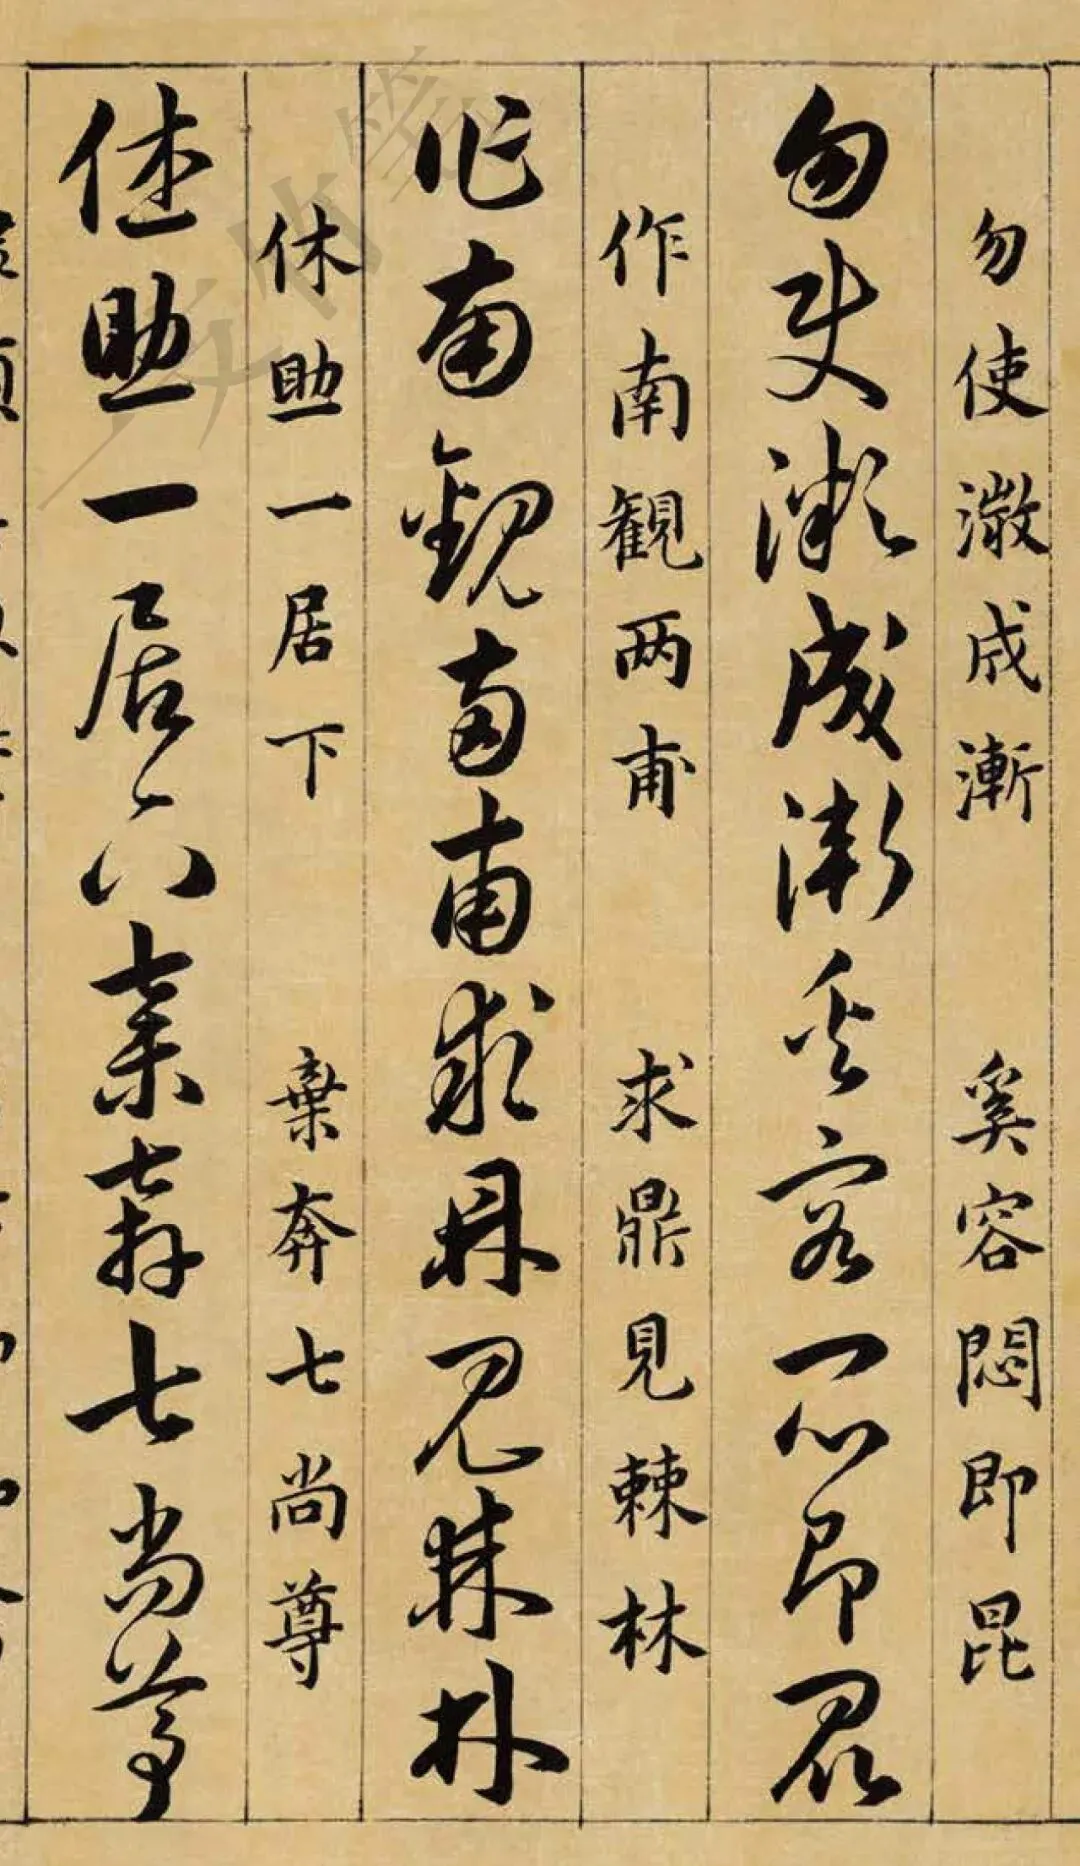 勿使潋成漸 奚容悶即昆
勿使潋成漸奚容悶即昆
作南観两甫 求鼎見棘林
作南観两甫求鼎見棘林
休助一居下 棄奔七尚尊
休助一居下棄奔七尚尊